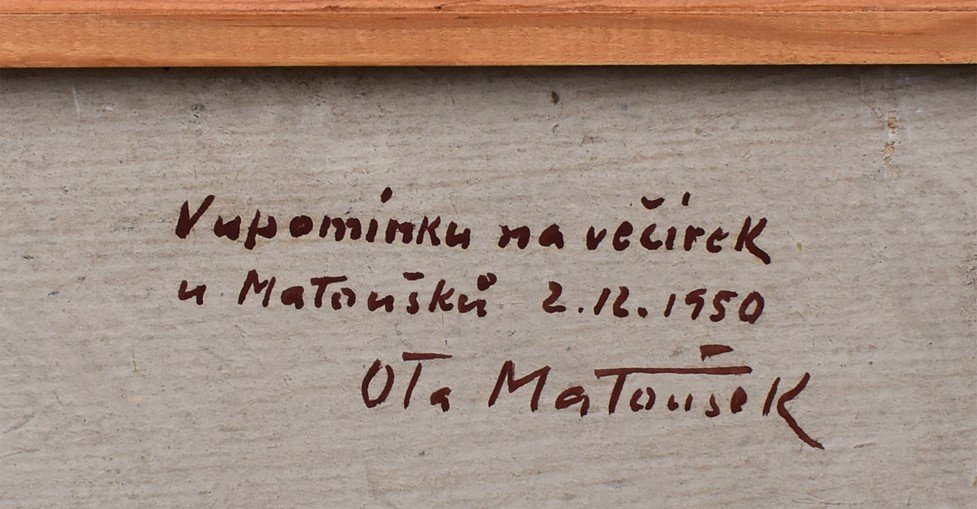 Vupomínku na večírek
u Matoušků 2.12.1950
Ota Matoušek